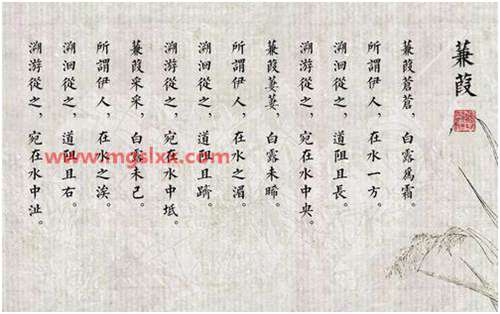 蒹葭
蒹葭蒼蒼，白露爲霜。
所謂伊人，在水一方。
溯洄從之，道阻且長。
溯游從之，宛在水中央。
蒹葭萋萋，白露未晞。
所謂伊人，在水之湄。
溯洄從之，道阻且躋。
溯游從之，宛在水中坻。
蒹葭采采，白露未已。
所謂伊人，在水之涘。
溯洄從之，道阻且右。
溯游從之，宛在水中沚。
www.mgslxx.com